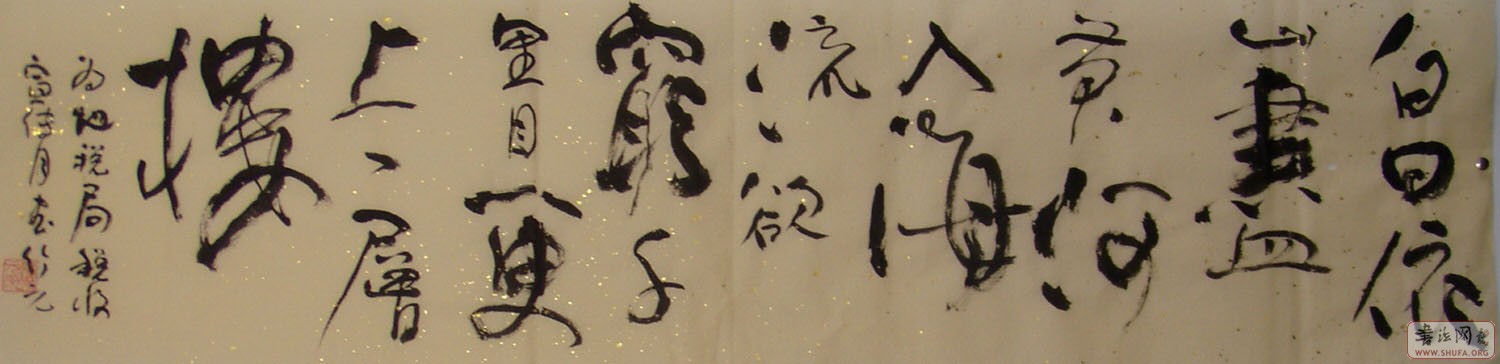 白日依
山盡
黄河
入海
流欲
窮千
里目更
上一層
樓
为地税局税收
宣传月
書法网
WWW.SHUFA.ORG